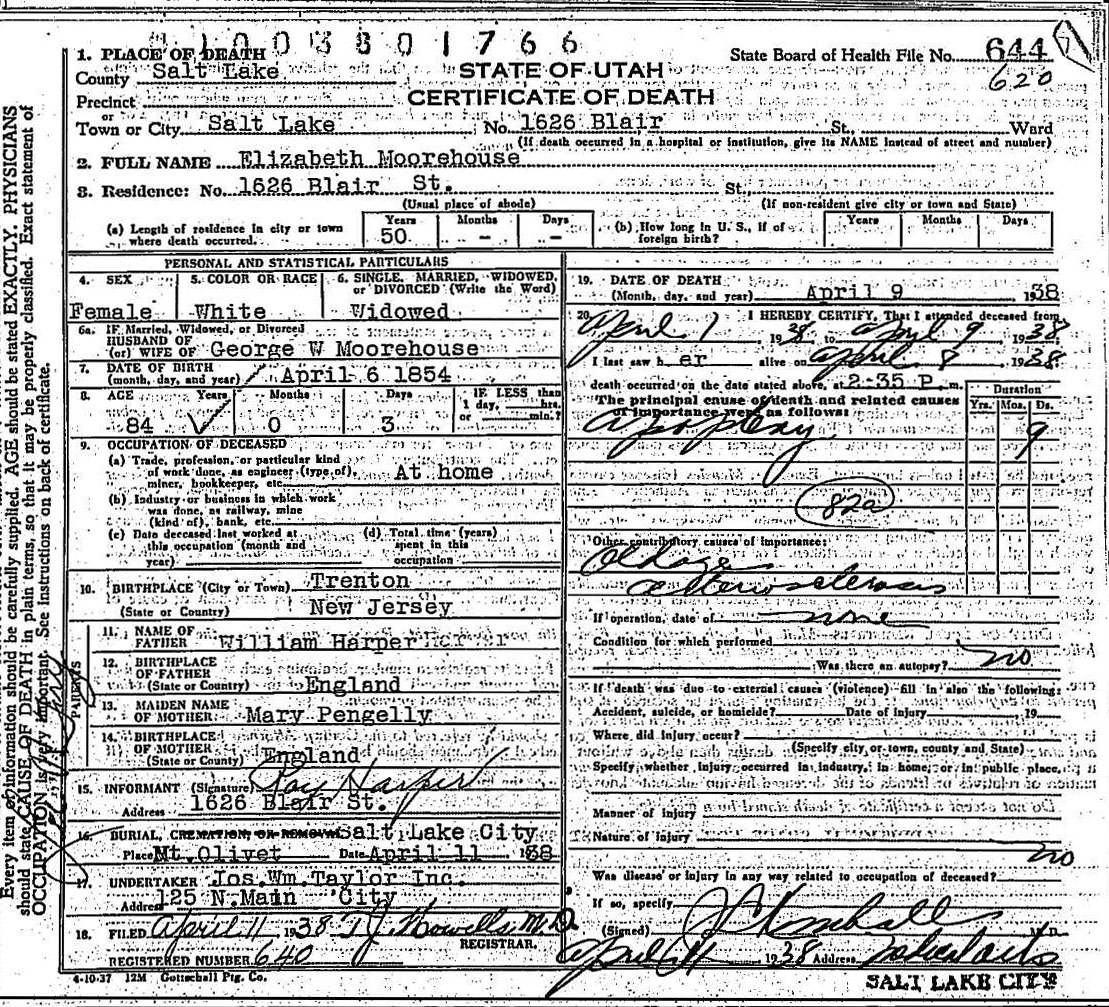 1003801766
1. PLACE OF DEATH
County Salt Lake
Precinct
or
Town or City Salt Lake No. 1626 Blair St. Ward
STATE OF UTAH
CERTIFICATE OF DEATH
State Board of Health File No. 644
620
(If death occurred in a hospital or institution, give its NAME instead of street and number)
2. FULL NAME Elizabeth Moorehouse
3. Residence: No. 1626 Blair St. St.
(Usual place of abode) (If non-resident give city or town and State)
(a) Length of residence in city or town where death occurred. Years 50 Months - Days -
(b) How long in U. S., if of foreign birth? Years Months Days
PERSONAL AND STATISTICAL PARTICULARS
4. SEX 5. COLOR OR RACE 6. SINGLE, MARRIED, WIDOWED, or DIVORCED (Write the Word)
Female White Widowed
6a. IF Married, Widowed, or Divorced
HUSBAND OF
(or) WIFE OF George W Moorehouse
7. DATE OF BIRTH
(month, day, and year) April 6 1854
8. AGE Years Months Days IF LESS than
1 day, hrs.
or min.?
84 0 3
9. OCCUPATION OF DECEASED
(a) Trade, profession, or particular kind
of work done, as engineer (type of),
miner, bookkeeper, etc. At home
(b) Industry or business in which work
was done, as railway, mine
(kind of), bank, etc.
(c) Date deceased last worked at
this occupation (month and
year)
(d) Total time (years)
spent in this
occupation
10. BIRTHPLACE (City or Town) Trenton
(State or Country) New Jersey
PARENTS
11. NAME OF
FATHER William Harper
12. BIRTHPLACE
OF FATHER
(State or Country) England
13. MAIDEN NAME
OF MOTHER Mary Pengelly
14. BIRTHPLACE
OF MOTHER
(State or Country) England
15. INFORMANT (Signature) Roy Harper
Address 1626 Blair St.
16. BURIAL, CREMATION, OR REMOVAL Salt Lake City
Place Mt. Olivet Date April 11 1938
17. UNDERTAKER Jos. Wm. Taylor Inc.
Address 125 N. Main City
18. FILED April 11 1938 T J Howells, M.D.
REGISTRAR.
REGISTERED NUMBER 640
4-10-37 12M Gottschall Ptg. Co.
19. DATE OF DEATH
(Month, day, and year) April 9 1938
20. I HEREBY CERTIFY, That I attended deceased from
April 1 1938, to April 9 1938
I last saw h er alive on April 8 1938
death occurred on the date stated above, at 2:35 P. m.
The principal cause of death and related causes
of importance were as follows:
Duration
Yrs. Mos. Ds.
Apoplexy 9
82a
Other contributory causes of importance:
Old age
arteriosclerosis
If operation, date of none
Condition for which performed
Was there an autopsy? no
If death was due to external causes (violence) fill in also the following:
Accident, suicide, or homicide? Date of injury 19
Where did injury occur?
(Specify city or town, county and State)
Specify whether injury occurred in industry, in home, or in public place.
Manner of injury
Nature of injury
Was disease or injury in any way related to occupation of deceased? no
If so, specify
(Signed) M. D.
April 11 1938 Address
SALT LAKE CITY
Every item of information should be carefully supplied. AGE should be stated EXACTLY. PHYSICIANS
should state CAUSE OF DEATH in plain terms, so that it may be properly classified. Exact statement of
OCCUPATION is very important. See instructions on back of certificate.